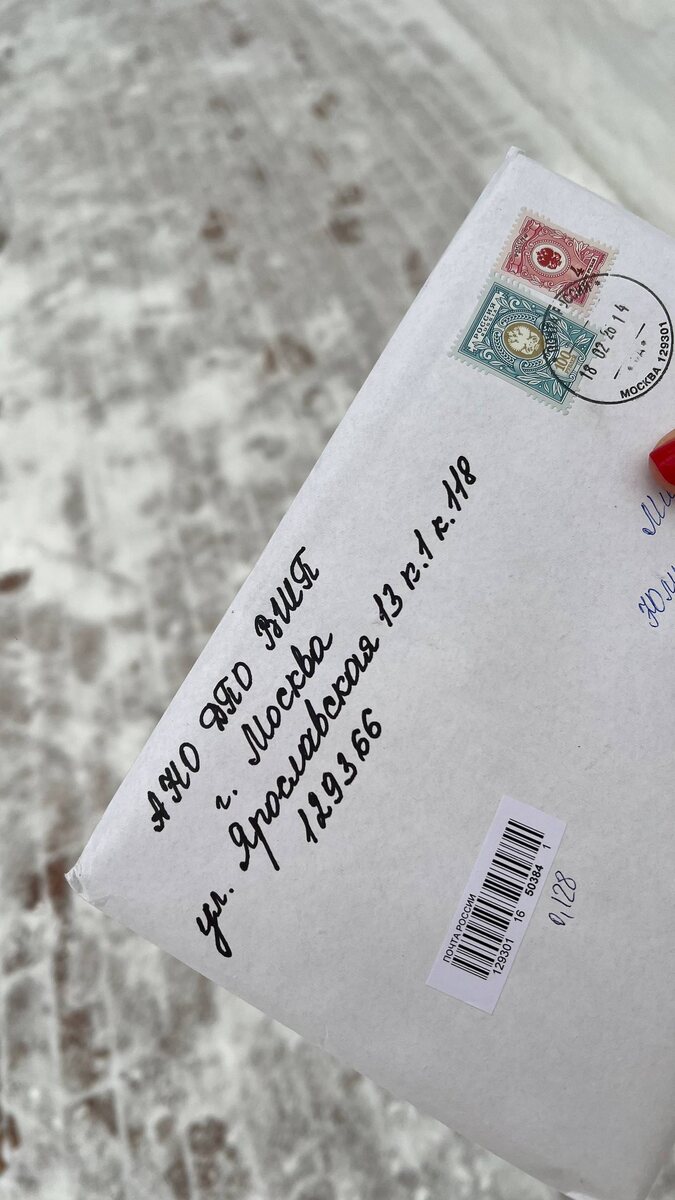 АНО ДПО ВШП
г. Москва
ул. Ярославская 13 к.1 к.118
129366
РОССИЯ
100
4
18 02 26 14
МОСКВА 129301
ПОЧТА РОССИИ
129301 16 50384 1
0,128